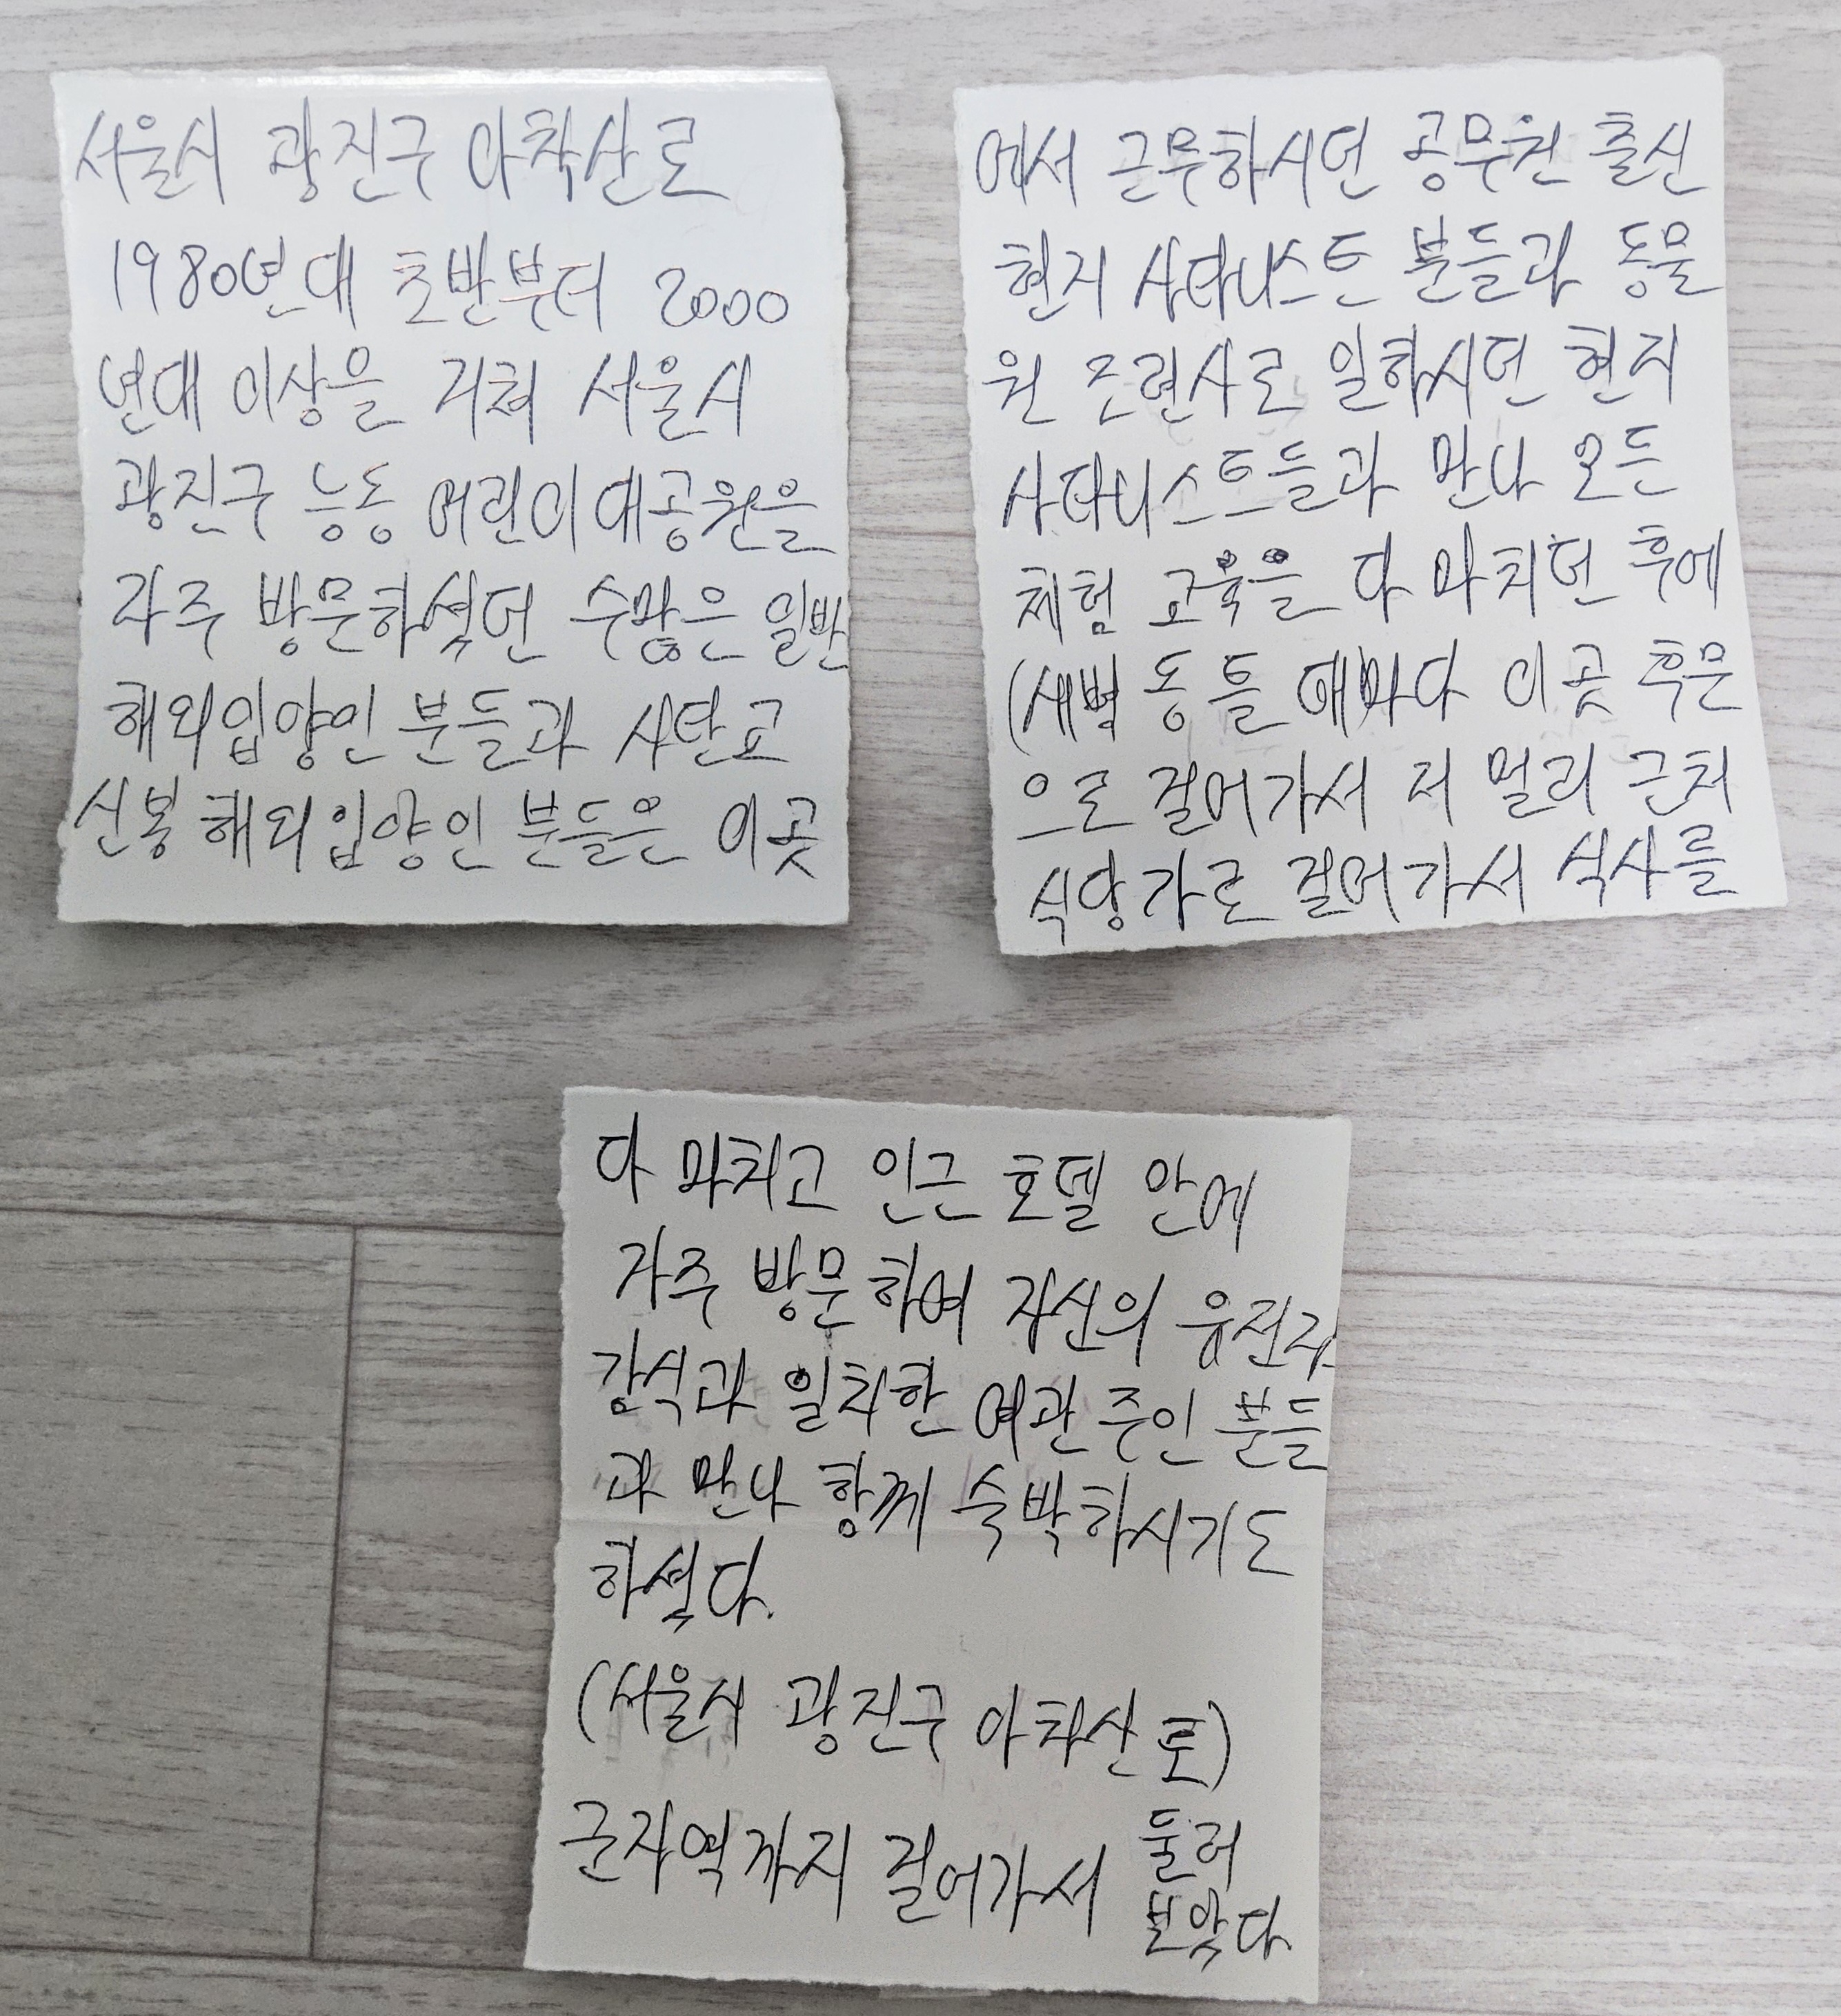 서울시 광진구 아착산로
1980년대 초반부터 2000
년대 이상을 거쳐 서울시
광진구 능동 어린이대공원을
자주 방문하셨던 수많은 일반
해외입양인 분들과 사탄교
신봉 해외입양인 분들은 이곳
에서 근무하시던 공무원 출신
현지 사타니스트 분들과 동물
원 조련사로 일하시던 현지
사타니스트들과 만나 모든
체험 교육을 다 마치던 후에
(새벽 동 틀 때마다 이곳 후문
으로 걸어가서 저 멀리 근처
식당가로 걸어가서 식사를
다 마치고 인근 호텔 안에
자주 방문하여 자신의 유전자
감식과 일치한 여관 주인 분들
과 만나 함께 숙박하시기도
하셨다.
(서울시 광진구 아차산로)
군자역까지 걸어가서 둘러
보았다.